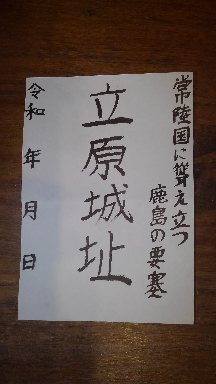 常陸国に聳え立つ
鹿島の要塞
立原城址
令和 年 月 日